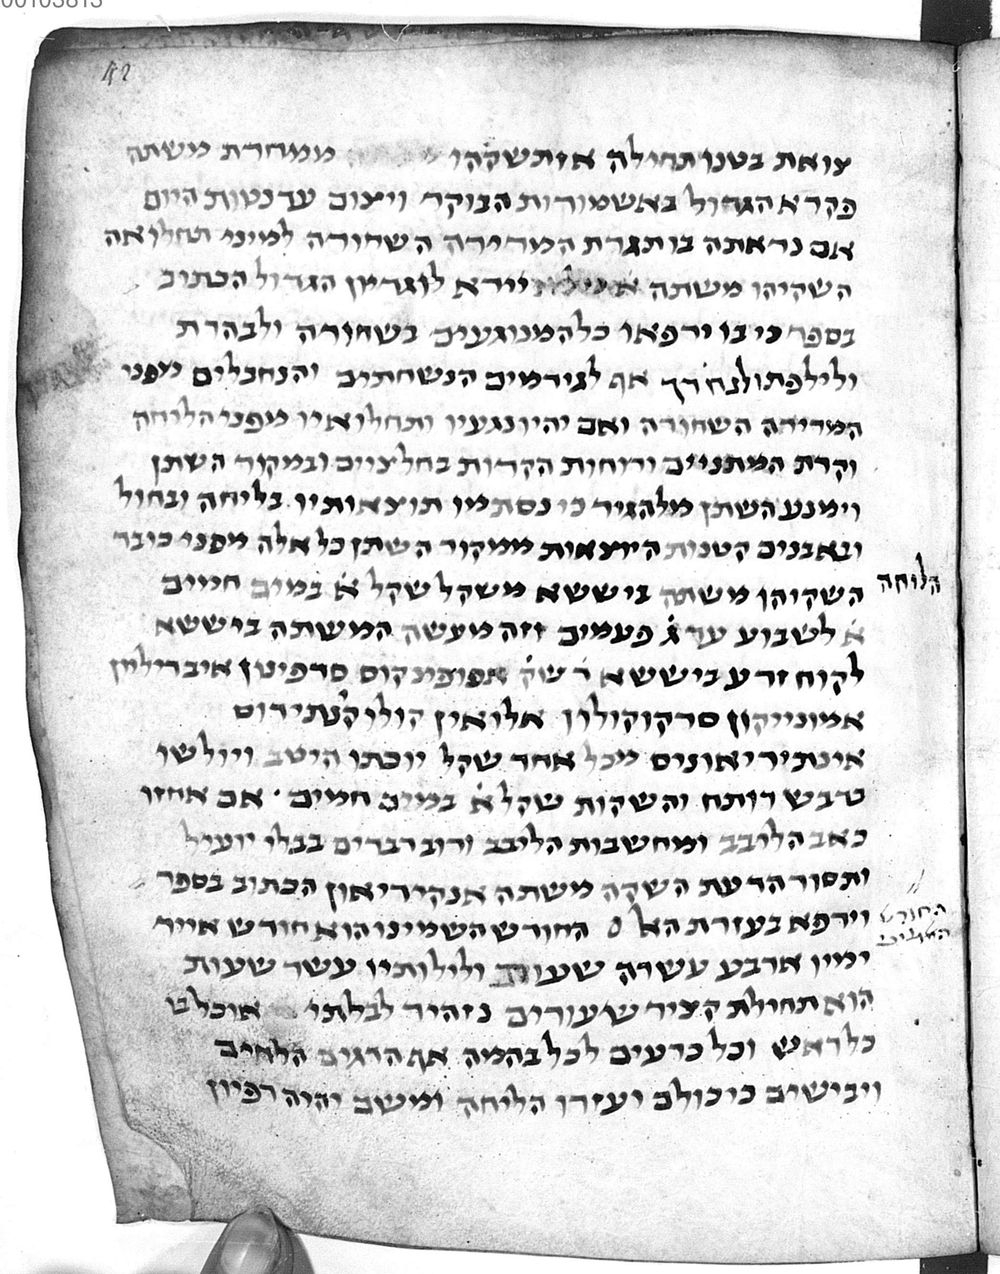 00103813
42
צואת בטנו תחילה אז תשקהו ממחרת משתה
פקרא הגדול באשמורות הבוקר ויצום עד נטות היום
אם נראתה בו תגרת המרירה השחורה למיני תחלואה
השקיהו משתה יירא לוגדיון הגדול הכתוב
בספר כי בו ירפאו כל המנוגעים בשחורה ולבהרת
ולילפת ולנחרך אף לגידמים הנשחתים והנחבלים מפני
המרירה השחורה ואם יהיו נגעיו ותחלואיו מפני הליחה
וקרת המתניים ורוחות הקרות בחלציים ובמקור השתן
וימנע השתן מלהגיר כי נסתמו תוצאותיו בליחה ובחול
ובאבנים קטנות היוצאות ממקור השתן כל אלה מפני כובד
הליחה
השקיהן משתה בישא משקל שקל א במים חמים
א לשבוע עד ג פעמים וזה מעשה המשתה בישא
לקוח זרע בישא ו שק אפופינקוס סרפינון איברילין
אמונייקון סרקוקולון אלואין קולוקנתידוס
אינתיריאונים מכל אחד שקל יוכתו היטב ויולשו
בדבש רותח והשקות שקל א במים חמים אם אחזו
כאב הליבב ומחשבות הליבב ורוב דברים בבלי יועיל
ותסור הדעת השקה משתה אנקידיאון הכתוב בספר
וירפא בעזרת האל החורש השמיני הוא חודש אייר
ימיו ארבע עשרה שעות ולילותיו עשר שעות
הוא תחילת קציר שעורים נזהיר לבלתי אוכל
כל ראש וכל כרעים לכל בהמה אף הדגים הלחים
ויבישים כי כולם יעזרו הליחה ומשם יהיה רפיון